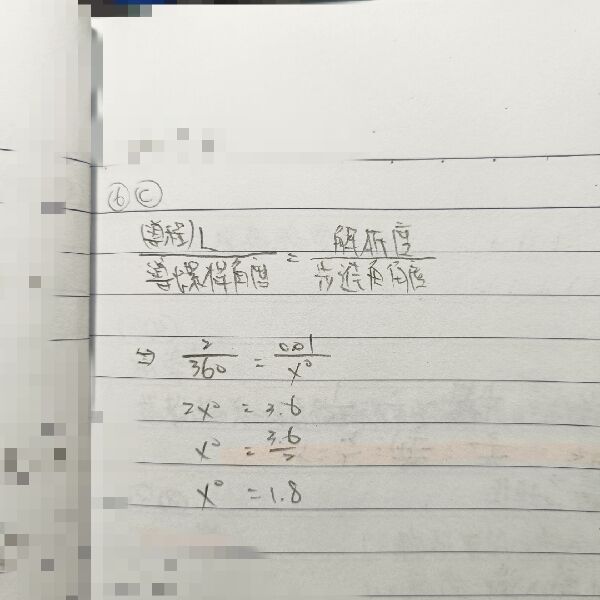 ⑥ Ⓒ
(導程)L / 導螺桿角度 = 解析度 / 步進角角度
⇒ 2/360 = 0.01/X°
2X° = 3.6
X° = 3.6/2
X° = 1.8